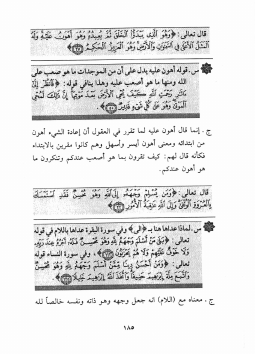 قال تعالى: ﴿وَهُوَ الَّذِي يَبْدَأُ الْخَلْقَ ثُمَّ يُعِيدُهُ وَهُوَ أَهْوَنُ عَلَيْهِ وَلَهُ
الْمَثَلُ الْأَعْلَىٰ فِي السَّمَاوَاتِ وَالْأَرْضِ وَهُوَ الْعَزِيزُ الْحَكِيمُ﴾
س. قوله أهون عليه يدل على أن من الموجدات ما هو صعب على
الله ومنها ما هو أصعب عليه وهذا ينافي قوله: ﴿فَانْظُرْ إِلَىٰ
آثَارِ رَحْمَتِ اللَّهِ كَيْفَ يُحْيِي الْأَرْضَ بَعْدَ مَوْتِهَا إِنَّ ذَٰلِكَ لَمُحْيِي
الْمَوْتَىٰ وَهُوَ عَلَىٰ كُلِّ شَيْءٍ قَدِيرٌ﴾
ج. إنما قال أهون عليه لما تقرر في العقول أن إعادة الشيء أهون
من ابتدائه ومعنى أهون أيسر وأسهل وهم كانوا مقرين بالابتداء
فكأنه قال لهم: كيف تقرون بما هو أصعب عندكم وتنكرون ما
هو أهون عندكم.
قال تعالى: ﴿وَمَنْ يُسْلِمْ وَجْهَهُ إِلَى اللَّهِ وَهُوَ مُحْسِنٌ فَقَدِ اسْتَمْسَكَ
بِالْعُرْوَةِ الْوُثْقَىٰ وَإِلَى اللَّهِ عَاقِبَةُ الْأُمُورِ﴾
س. لماذا عداها هنا بـ ﴿إلى﴾ وفي سورة البقرة عداها باللام في قوله
تعالى: ﴿بَلَىٰ مَنْ أَسْلَمَ وَجْهَهُ لِلَّهِ وَهُوَ مُحْسِنٌ فَلَهُ أَجْرُهُ عِنْدَ رَبِّهِ
وَلَا خَوْفٌ عَلَيْهِمْ وَلَا هُمْ يَحْزَنُونَ﴾، وفي سورة النساء قوله
تعالى: ﴿وَمَنْ أَحْسَنُ دِينًا مِمَّنْ أَسْلَمَ وَجْهَهُ لِلَّهِ وَهُوَ مُحْسِنٌ
وَاتَّبَعَ مِلَّةَ إِبْرَاهِيمَ حَنِيفًا وَاتَّخَذَ اللَّهُ إِبْرَاهِيمَ خَلِيلًا﴾
ج. معناه مع (اللام) انه جعل وجهه وهو ذاته ونفسه خالصاً لله
١٨٥